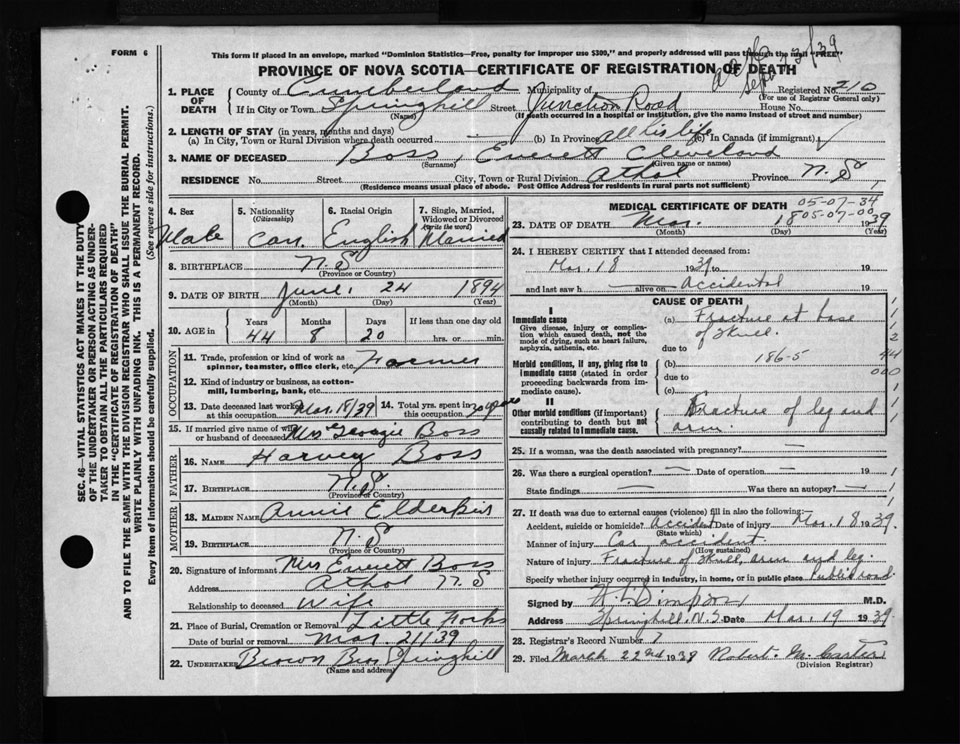 FORM 6
This form if placed in an envelope, marked "Dominion Statistics—Free, penalty for improper use $300," and properly addressed will pass through the mail "FREE"
Sept 23/39
PROVINCE OF NOVA SCOTIA—CERTIFICATE OF REGISTRATION OF DEATH
1. PLACE OF DEATH
County of Cumberland Municipality of Registered No. 210
(For use of Registrar General only)
If in City or Town Springhill Street Junction Road House No.
(Name) (If death occurred in a hospital or institution, give the name instead of street and number)
2. LENGTH OF STAY (in years, months and days)
(a) In City, Town or Rural Division where death occurred — (b) In Province all his life (c) In Canada (if immigrant)
3. NAME OF DECEASED Boss, Everett Cleveland
(Surname) (Given name or names)
RESIDENCE No. Street City, Town or Rural Division Athol Province N.S.
(Residence means usual place of abode. Post Office Address for residents in rural parts not sufficient)
4. Sex Male
5. Nationality (Citizenship) Can.
6. Racial Origin English
7. Single, Married, Widowed or Divorced (write the word) Married
8. BIRTHPLACE N.S
(Province or Country)
9. DATE OF BIRTH June 24 1894
(Month) (Day) (Year)
10. AGE in Years Months Days If less than one day old
44 8 20 hrs. or min.
OCCUPATION
11. Trade, profession or kind of work as spinner, teamster, office clerk, etc. Farmer
12. Kind of industry or business, as cotton-mill, lumbering, bank, etc.
13. Date deceased last worked at this occupation Mar 18/39 14. Total yrs. spent in this occupation 20 years
15. If married give name of wife or husband of deceased Mrs Georgie Boss
FATHER
16. NAME Harvey Boss
17. BIRTHPLACE N.S
(Province or Country)
MOTHER
18. MAIDEN NAME Annie Elderkin
19. BIRTHPLACE N.S
(Province or Country)
20. Signature of informant Mrs Everett Boss
Address Athol N.S
Relationship to deceased Wife
21. Place of Burial, Cremation or Removal Little Forks
Date of burial or removal Mar. 21/39
22. UNDERTAKER Brown Bros Springhill
(Name and address)
MEDICAL CERTIFICATE OF DEATH
05-07-34
05-07-00
23. DATE OF DEATH Mar. 18 1939
(Month) (Day) (Year)
24. I HEREBY CERTIFY that I attended deceased from:
Mar. 18 1939 to 19
and last saw h — alive on Accidental 19
CAUSE OF DEATH
I
Immediate cause
Give disease, injury or complication which caused death, not the mode of dying, such as heart failure, asphyxia, asthenia, etc.
(a) Fracture at base of skull.
due to
Morbid conditions, if any, giving rise to immediate cause (stated in order proceeding backwards from immediate cause).
(b) 186-5
due to
(c)
II
Other morbid conditions (if important) contributing to death but not causally related to immediate cause.
Fracture of leg and arm.
1
1
2
44
000
1
1
25. If a woman, was the death associated with pregnancy? —
26. Was there a surgical operation? — Date of operation — 19 1
State findings — Was there an autopsy? — 1
27. If death was due to external causes (violence) fill in also the following:
Accident, suicide or homicide? Accident Date of injury Mar. 18 1939.
(State which)
Manner of injury Car accident
(How sustained)
Nature of injury Fracture of Skull, arm and leg.
Specify whether injury occurred in industry, in home, or in public place Public road
Signed by M.D.
Address Springhill, N.S Date Mar. 19 1939.
28. Registrar's Record Number 7
29. Filed March 22nd 1939 Robert. M. Carter
(Division Registrar)
SEC. 46—VITAL STATISTICS ACT MAKES IT THE DUTY
OF THE UNDERTAKER OR PERSON ACTING AS UNDERTAKER TO OBTAIN ALL THE PARTICULARS REQUIRED
IN THE "CERTIFICATE OF REGISTRATION OF DEATH"
AND TO FILE THE SAME WITH THE DIVISION REGISTRAR WHO SHALL ISSUE THE BURIAL PERMIT.
WRITE PLAINLY WITH UNFADING INK. THIS IS A PERMANENT RECORD.
Every item of information should be carefully supplied. (See reverse side for instructions.)